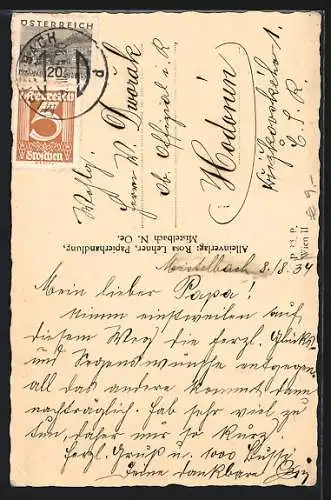 ÖSTERREICH
BACH
20
d
5
Groschen
Wohlg.
Herrn W. Dvořák
Ob. Offizial i. R.
Hodonín
Č. S. R.
9,-
Alleinverlag: Rosa Lehner, Papierhandlung,
Mistelbach N. Oe.
Wien II
Mistelbach 8./8. 34
Mein lieber Papa!
Nimm einstweilen auf
diesem Weg die herzl. Glücks-
und Segenswünsche entgegen
all das andere kommt dann
nachträglich. Hab sehr viel zu
tun, daher nur so kurz.
Herzl. Gruß u. 1000 Bussi
Deine dankbare